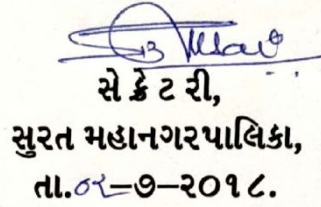 સેક્રેટરી,
સુરત મહાનગરપાલિકા,
તા.૦૨–૭–૨૦૧૮.